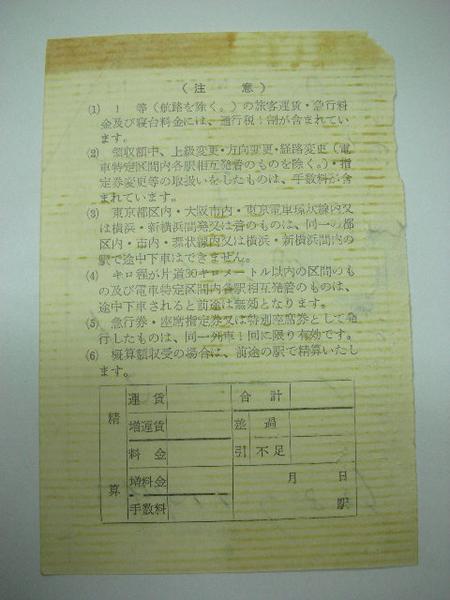 （注　意）
(1)　1　等（航路を除く。）の旅客運賃・急行料
金及び寝台料金には、通行税1割が含まれてい
ます。
(2)　領収額中、上級変更・方向変更・経路変更（電
車特定区間内各駅相互発着のものを除く。）・指
定券変更等の取扱いをしたものは、手数料が含
まれています。
(3)　東京都区内・大阪市内・東京電車環状線内又
は横浜・新横浜間発又は着のものは、同一の都
区内・市内・環状線内又は横浜・新横浜間内の
駅で途中下車はできません。
(4)　キロ程が片道30キロメートル以内の区間のも
の及び電車特定区間内各駅相互発着のものは、
途中下車されると前途は無効となります。
(5)　急行券・座席指定券又は特別座席券として発
行したものは、同一列車1回に限り有効です。
(6)　概算額収受の場合は、前途の駅で精算いたし
ます。
精算
運賃
増運賃
料金
増料金
手数料
合計
差引
過
不足
月　日
駅